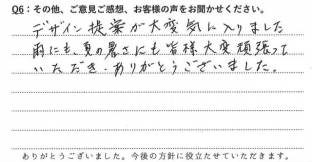 Q6：その他、ご意見ご感想、お客様の声をお聞かせください。
デザイン提案が大変気に入りました
雨にも、夏の暑さにも皆様大変頑張って
いただき、ありがとうございました。
ありがとうございました。今後の方針に役立たせていただきます。